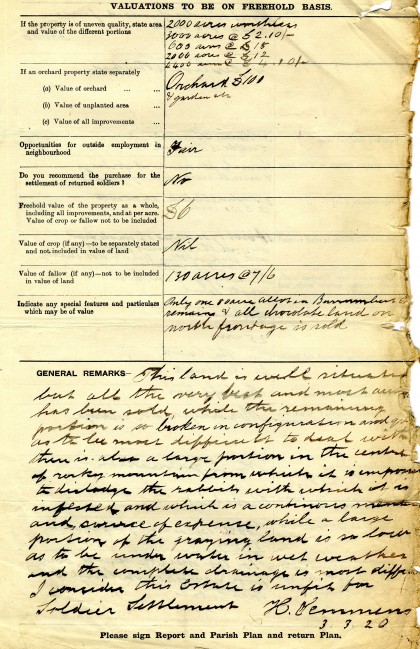 VALUATIONS TO BE ON FREEHOLD BASIS.
If the property is of uneven quality, state area and value of the different portions
2000 acres worthless
3000 acres @ £2.10/-
600 acres @ £18
2000 acres @ £12
2400 acres @ £4.10/-
If an orchard property state separately
(a) Value of orchard ... ...
Orchard £100
& garden etc
(b) Value of unplanted area ...
(c) Value of all improvements ...
Opportunities for outside employment in neighbourhood
Fair
Do you recommend the purchase for the settlement of returned soldiers?
No
Freehold value of the property as a whole, including all improvements, and at per acre. Value of crop or fallow not to be included
£6
Value of crop (if any)—to be separately stated and not included in value of land
Nil
Value of fallow (if any)—not to be included in value of land
130 acres @ 7/6
Indicate any special features and particulars which may be of value
Only one acre allot in
remains & all chocolate land on
north frontage is sold
GENERAL REMARKS—This land is well situated
but all the very best and most
has been sold, while the remaining
portion is so broken in configuration and
as to be most difficult to deal with
there is also a large portion in the centre
of rocky mountain from which it is
to dislodge the rabbits with which it is
infested and which is a continous
and source of expense, while a large
portion of the grazing land is so low
as to be under water in wet weather
and the complete drainage is most
I consider this Estate is unfit for
Soldier Settlement H.
3 3 20
Please sign Report and Parish Plan and return Plan.